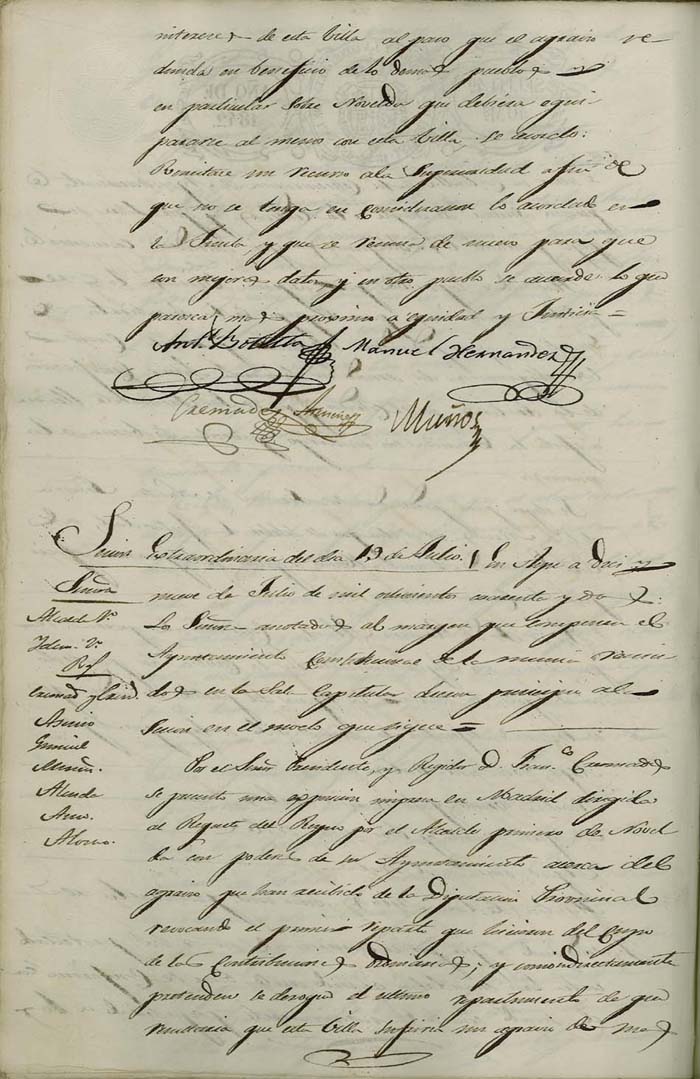 intereses de esta Villa al paso que el agravio re-
dunda en beneficio de los demas pueblos y
en particular sobre Novelda que debiera equi-
pararse al menos con esta Villa, se acordo:
Remitase un recurso a la Superioridad a fin de
que no se tenga en consideracion lo acordado en
la Junta y que se reuna de nuevo para que
con mejores datos y en otro pueblo se acuerde lo que
paresca mas proximo a equidad y Justicia =
Antº Botella Manuel Hernandez
Cremades Asencio Muños
Sesion Extraordinaria del dia 19 de Julio. En Aspe a diez y
Señores
nueve de Julio de mil ochocientos cuarenta y dos:
Alcalde 1º
Los Señores anotados al margen que componen el
Idem 2º
Ayuntamiento Constitucional de la misma reuni
Reg.
dos en la Sala Capitular dieron principio a la
Cremades
Sesion en el modo que sigue =
Asencio
Por el Señor Presidente, y Regidor D. Franco Cremades
Muños
se presentó una exposicion impresa en Madrid dirigida
Alcalde
al Regente del Reyno por el Alcalde primero de Novel
Alonso
da con poderes de su Ayuntamiento acerca del
agravio que han recibido de la Diputacion Provincial
revocando el primer reparto que hicieron del Cupo
de las Contribuciones Ordinarias; y como directamente
pretenden se derogue el ultimo repartimiento de que
resultaria que esta Villa sufriria un agravio de mas